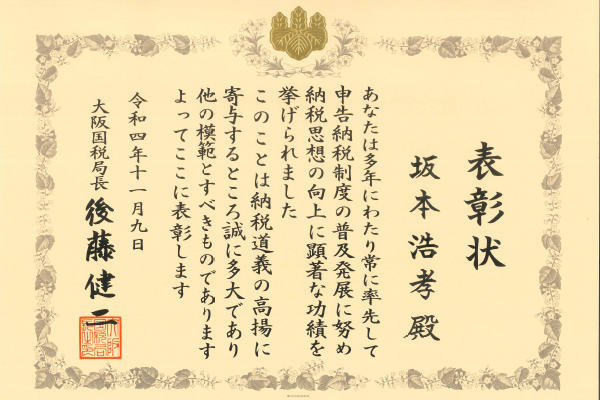 表彰状
坂本浩孝殿
あなたは多年にわたり常に率先して
申告納税制度の普及発展に努め
納税思想の向上に顕著な功績を
挙げられました
このことは納税道義の高揚に
寄与するところ誠に多大であり
他の模範とすべきものであります
よってここに表彰します
令和四年十一月九日
大阪国税局長 後藤健二